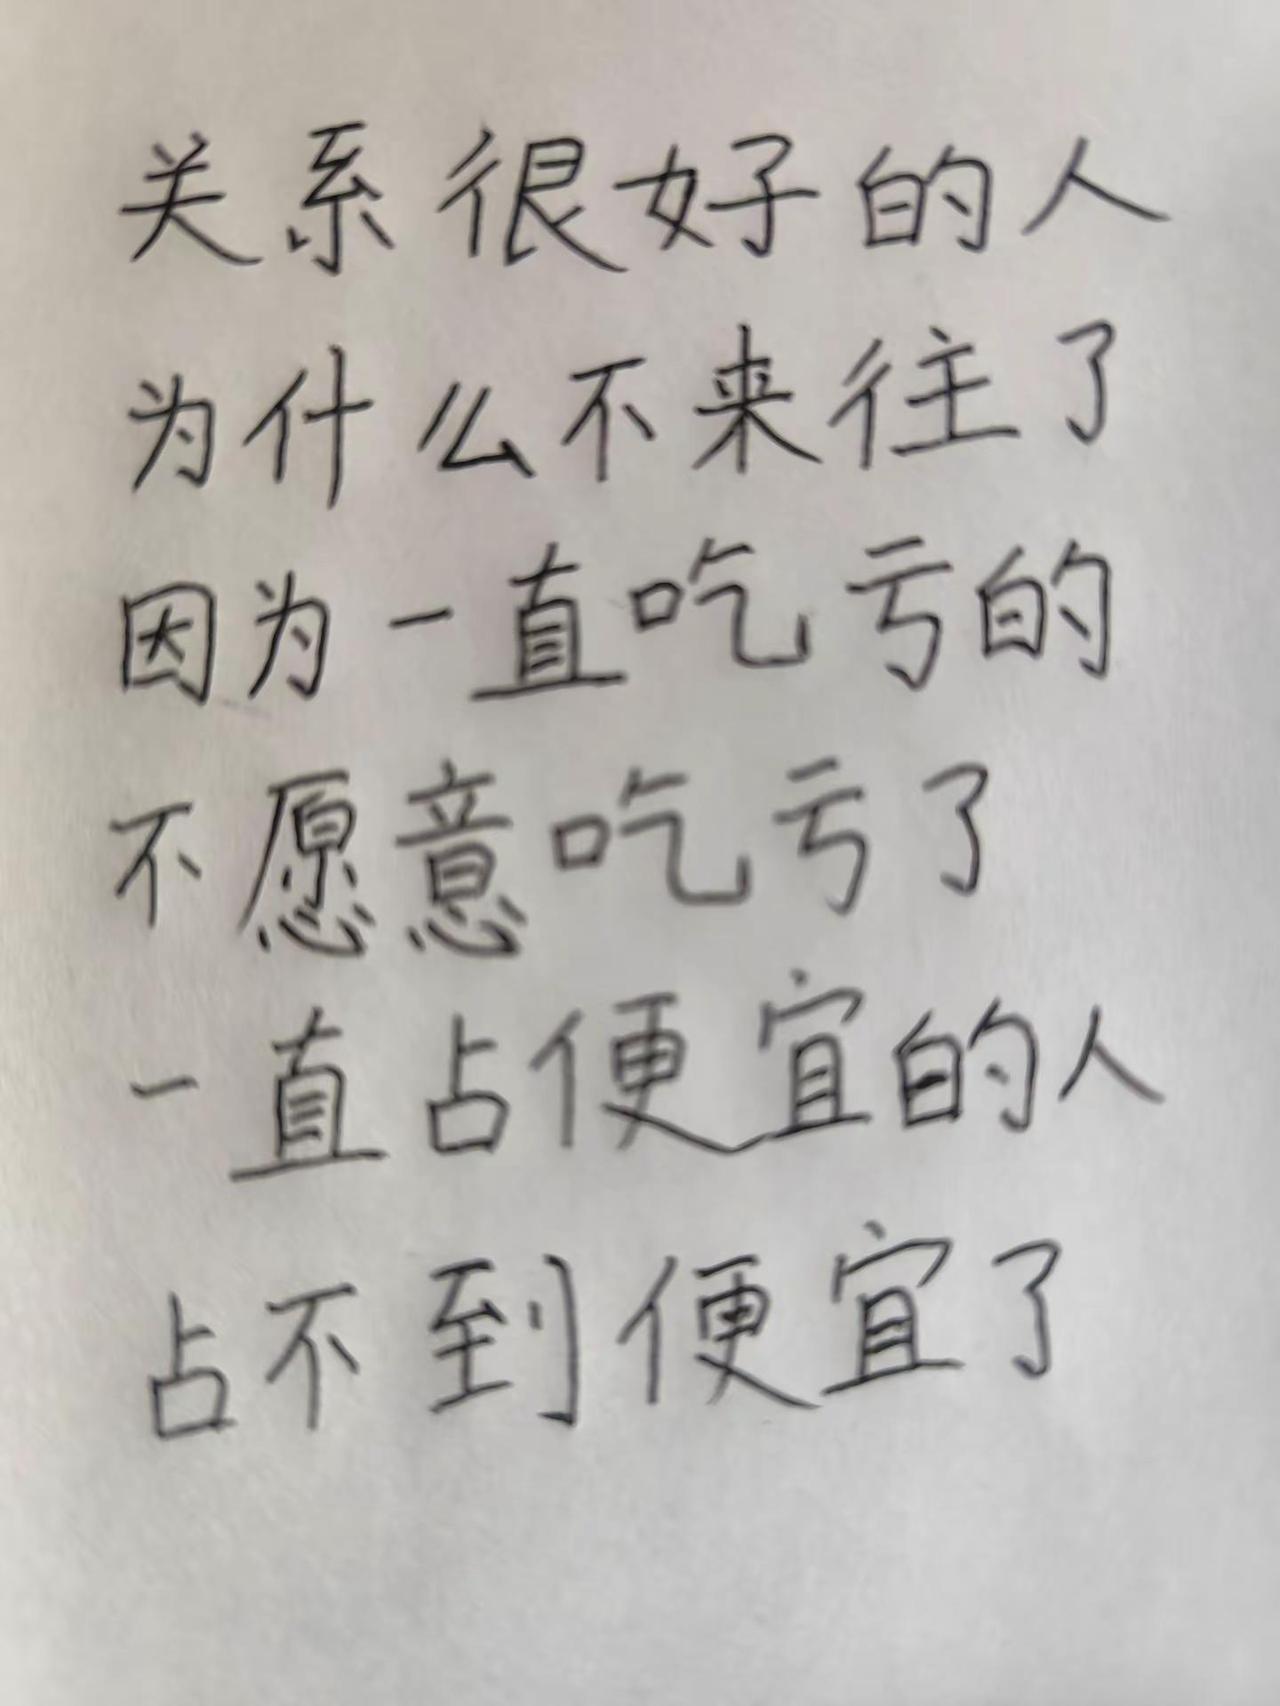 关系很好的人
为什么不来往了
因为一直吃亏的
不愿意吃亏了
一直占便宜的人
占不到便宜了